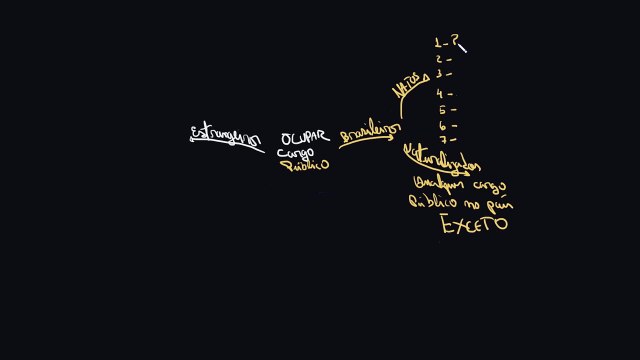 1- P
2-
3-
4-
5-
6-
7-
NATOS
Estrangeiros
OCUPAR
cargo
Público
Brasileiros
Naturalizados
Qualquer cargo
Público no país
EXCETO